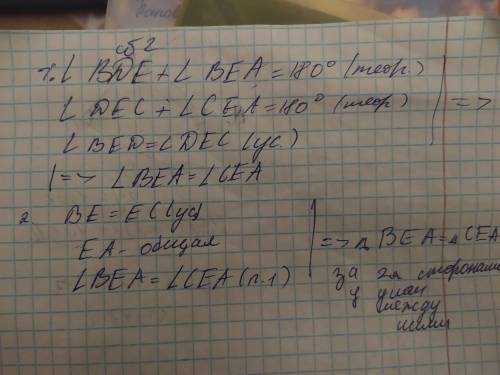 об 2
1. ∠ BDE + ∠ BEA = 180° (теор.)
∠ DEC + ∠ CEA = 180° (теор) | =>
∠ BED = ∠ DEC (ус.)
|=> ∠ BEA = ∠ CEA
2. BE = EC (ус)
EA - общая
∠ BEA = ∠ CEA (п.1)
| => Δ BEA = Δ CEA
за 2я сторонами
у углом
между
ними